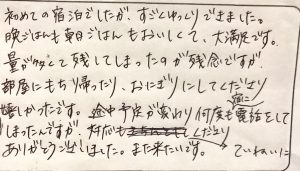 初めての宿泊でしたが、すごくゆっくりできました。
晩ごはんも朝ごはんもおいしくて、大満足です。
量が多くて残してしまったのが残念ですが、
部屋にもち帰ったり、おにぎりにしてくださり
嬉しかったです。途中予定が変わり何度も電話をして
しまったんですが、対応も ていねいにしてくださり
ありがとうございました。また来たいです。